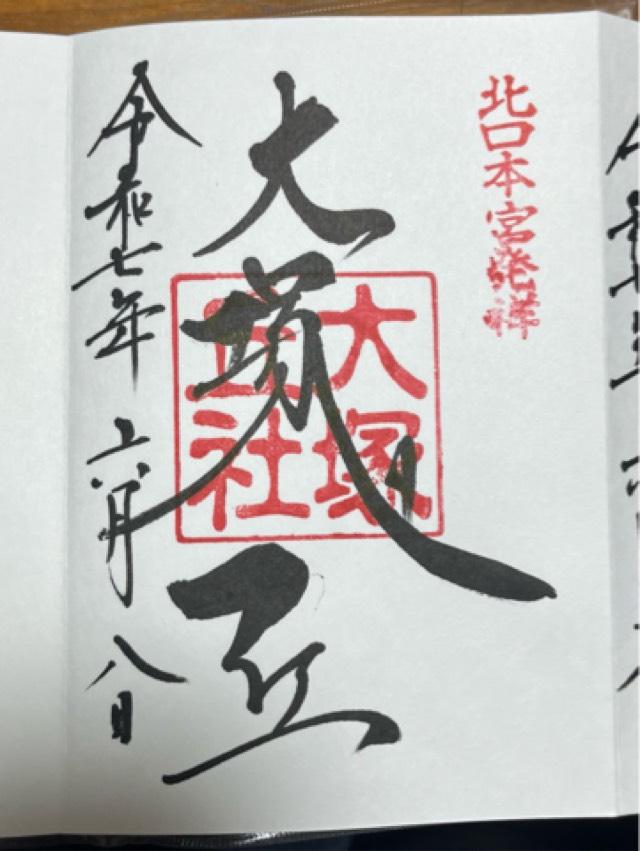 北口本宮発祥
大塚丘
大塚
丘社
令和七年 六月 八日